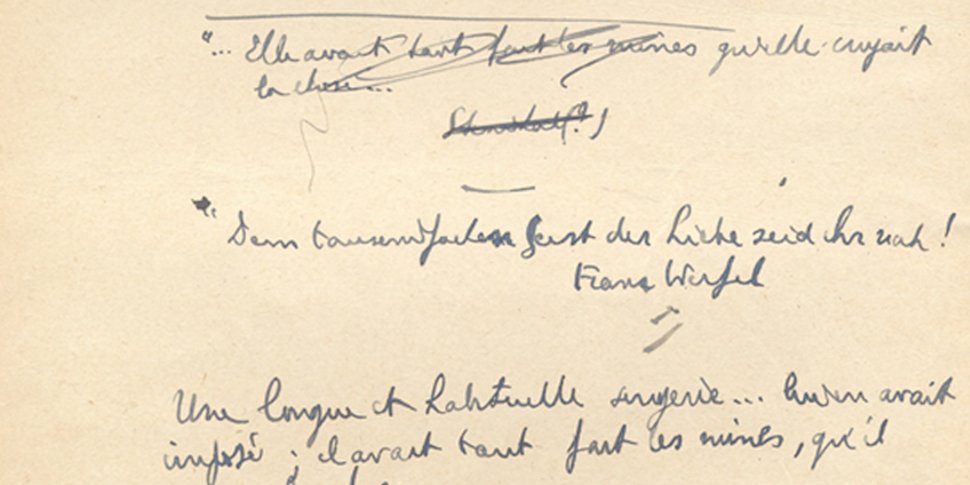 "... Elle avait tant fait les mines qu'elle croyait
la chose...
"Dem tausendfachen Geist der Liebe seid ihr nah!
Franz Werfel
Une longue et habituelle singerie... lui en avait
imposé ; il avait tant fait les mines, qu'il